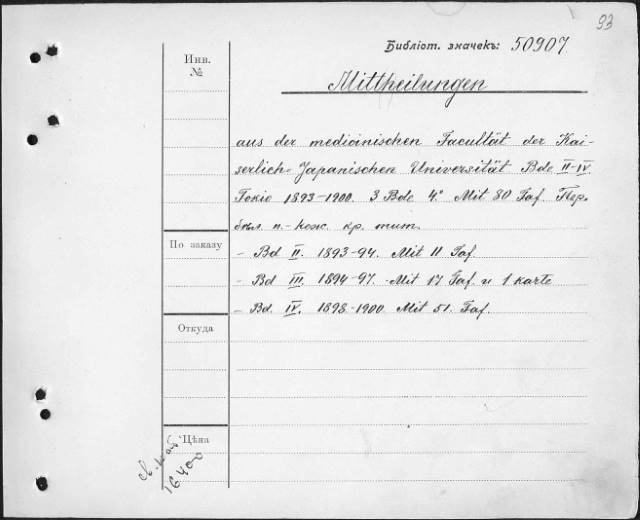 93
Библіот. значекъ: 50907
Инв. №
Mittheilungen
aus der medicinischen Facultät der Kai-
serlich-Japanischen Universität Bde II-IV.
Tokio 1893-1900. 3 Bde 4° Mit 80 Taf. Пер.
бѣл. п.-кож. кр. тит.
По заказу
- Bd II. 1893-94. Mit 11 Taf.
- Bd III. 1894-97. Mit 17 Taf. u 1 karte
- Bd. IV. 1898-1900. Mit 51. Taf.
Откуда
Цѣна
св.
16400